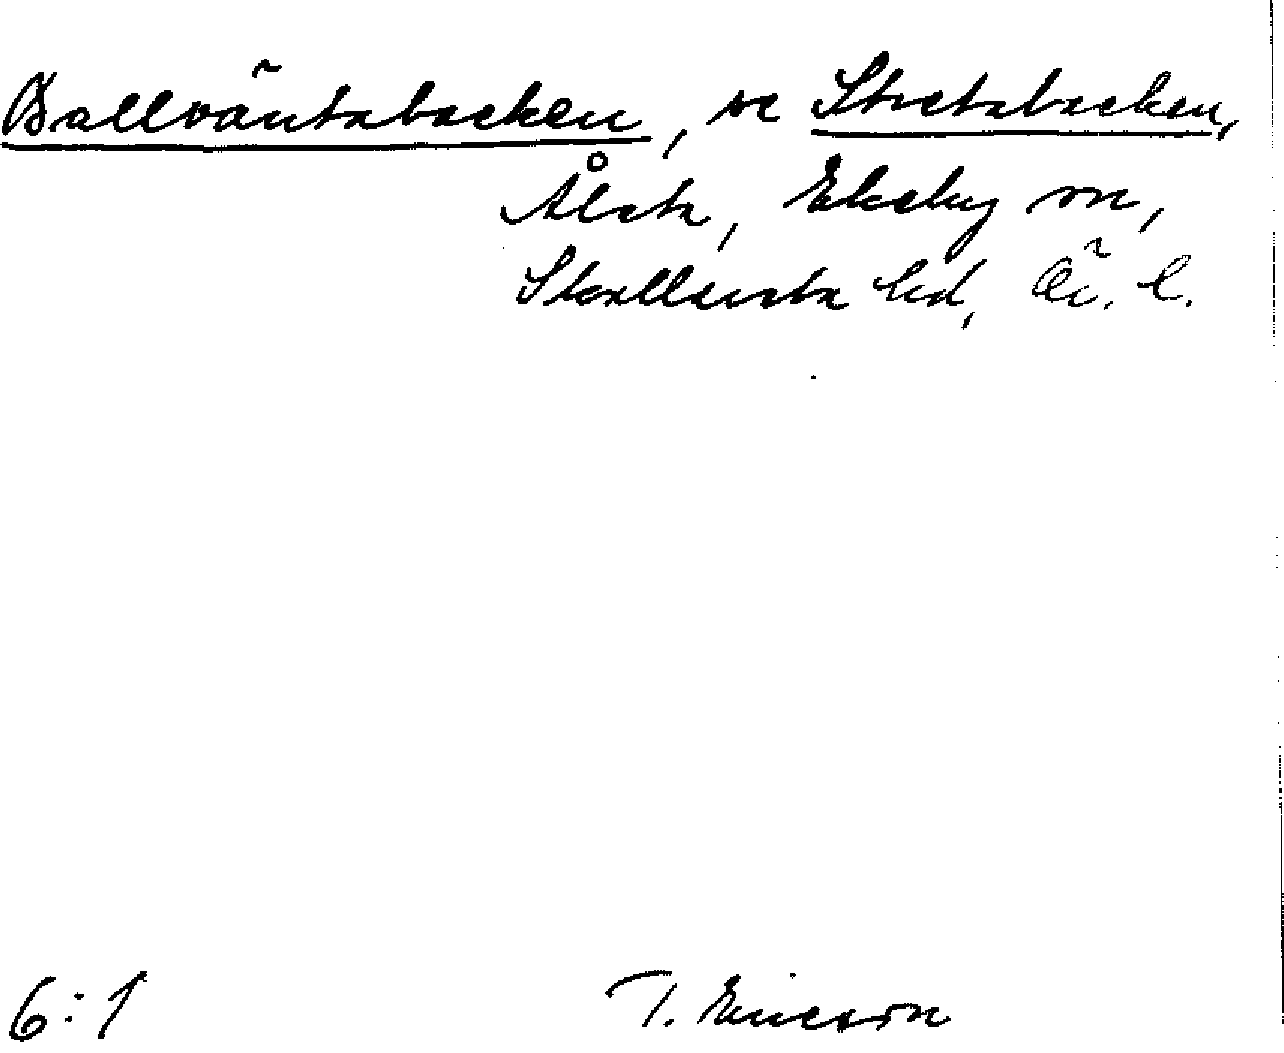 Ballväntabacken, se Stretabacken,
Ålsta, Ekeby sn,
Skyllersta hd, Ö. L.
6:1
T. Ericson